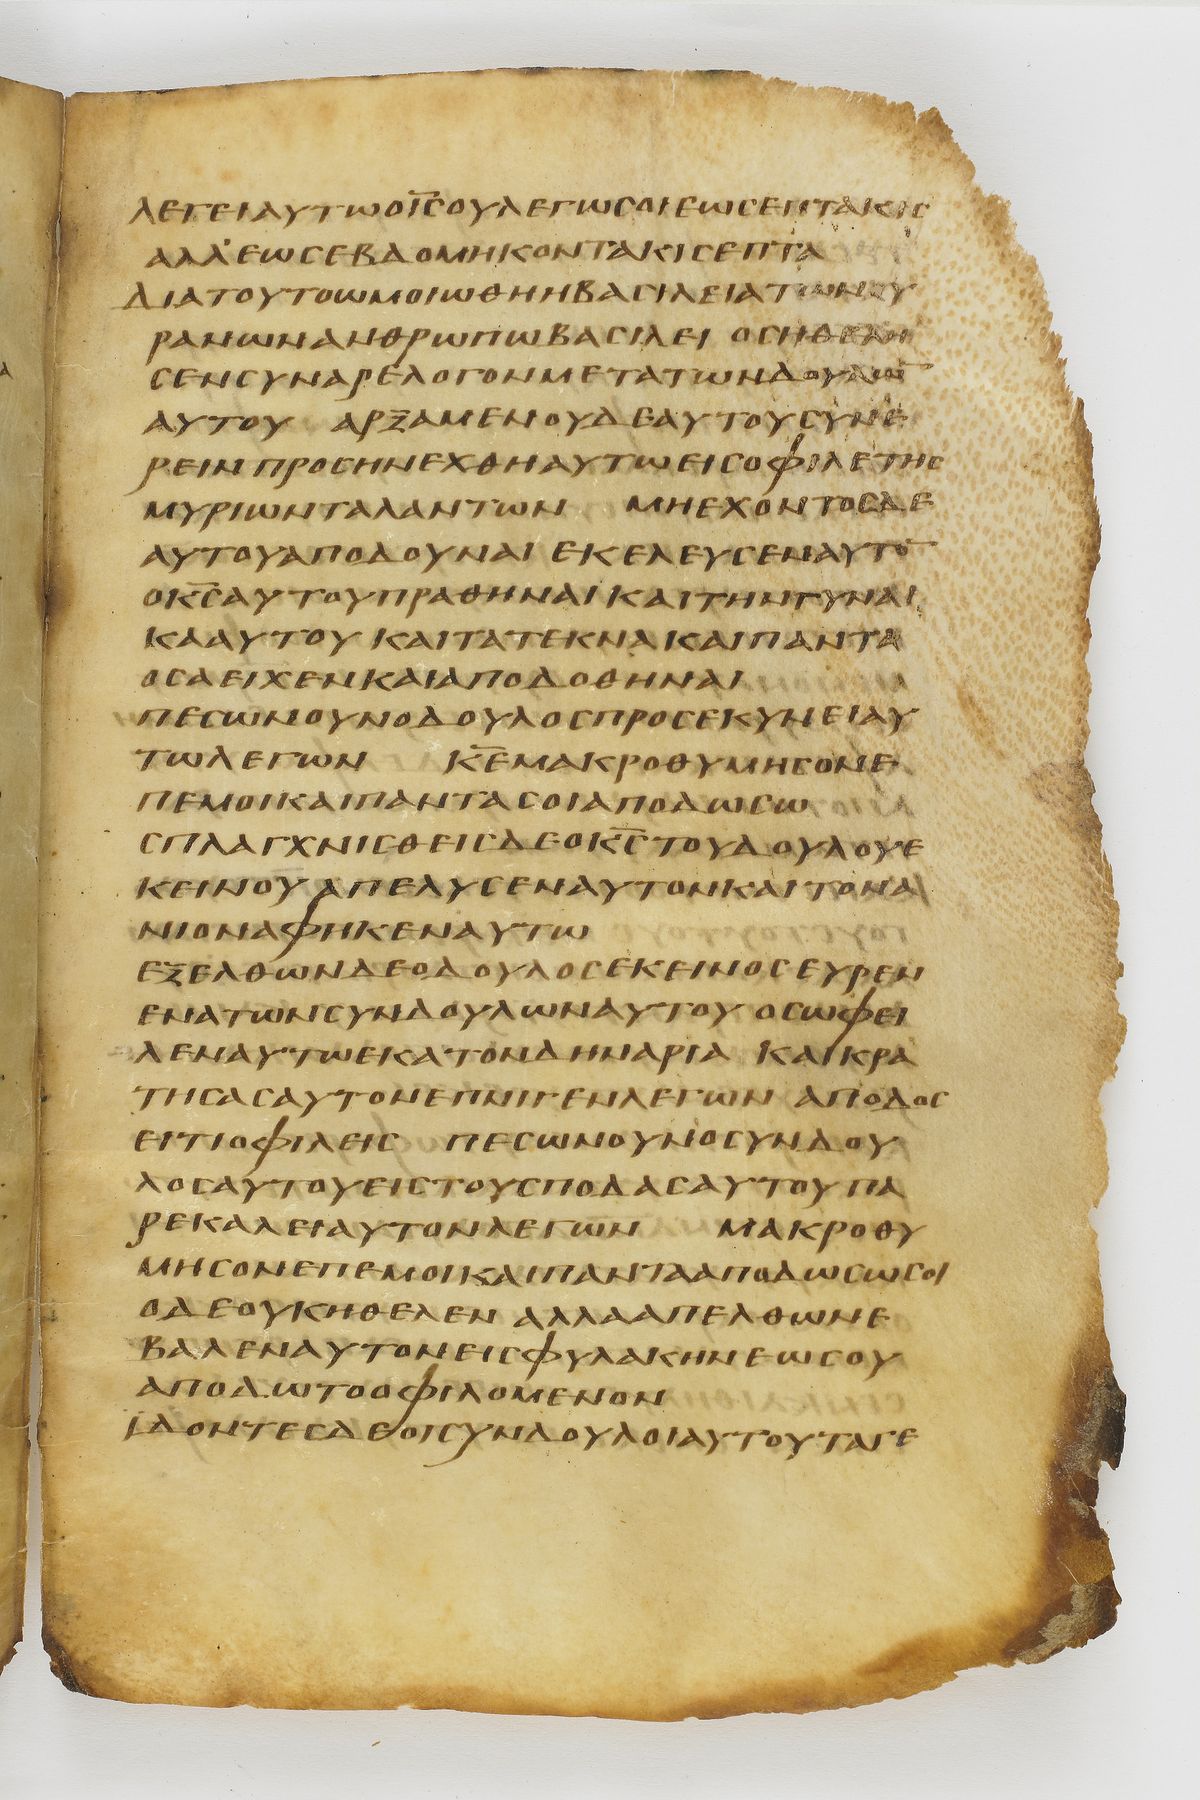 ΛΕΓΕΙΑΥΤΩΟΙ̅C̅ΟΥΛΕΓΩCΟΙΕΩCΕΠΤΑΚΙC
ΑΛΛ'ΕΩCΕΒΔΟΜΗΚΟΝΤΑΚΙCΕΠΤΑ
ΔΙΑΤΟΥΤΟΩΜΟΙΩΘΗΗΒΑCΙΛΕΙΑΤΩΝΟΥ
ΡΑΝΩΝΑΝΘΡΩΠΩΒΑCΙΛΕΙ ΟCΗΘΕΛΗ
CΕΝCΥΝΑΡΕΛΟΓΟΝΜΕΤΑΤΩΝΔΟΥΛΩ̅
ΑΥΤΟΥ ΑΡΞΑΜΕΝΟΥΔΕΑΥΤΟΥCΥΝΕ
ΡΕΙΝΠΡΟCΗΝΕΧΘΗΑΥΤΩΕΙCΟΦΙΛΕΤΗC
ΜΥΡΙΩΝΤΑΛΑΝΤΩΝ ΜΗΕΧΟΝΤΟCΔΕ
ΑΥΤΟΥΑΠΟΔΟΥΝΑΙ ΕΚΕΛΕΥCΕΝΑΥΤΟ̅
ΟΚ̅C̅ΑΥΤΟΥΠΡΑΘΗΝΑΙΚΑΙΤΗΝΓΥΝΑΙ
ΚΑΑΥΤΟΥ ΚΑΙΤΑΤΕΚΝΑΚΑΙΠΑΝΤΑ
ΟCΑΕΙΧΕΝΚΑΙΑΠΟΔΟΘΗΝΑΙ
ΠΕCΩΝΟΥΝΟΔΟΥΛΟCΠΡΟCΕΚΥΝΕΙΑΥ
ΤΩΛΕΓΩΝ Κ̅Ε̅ΜΑΚΡΟΘΥΜΗCΟΝΕ
ΠΕΜΟΙΚΑΙΠΑΝΤΑCΟΙΑΠΟΔΩCΩ
CΠΛΑΓΧΝΙCΘΕΙCΔΕΟΚ̅C̅ΤΟΥΔΟΥΛΟΥΕ
ΚΕΙΝΟΥΑΠΕΛΥCΕΝΑΥΤΟΝΚΑΙΤΟΝΑ
ΝΙΟΝΑΦΗΚΕΝΑΥΤΩ
ΕΞΕΛΘΩΝΔΕΟΔΟΥΛΟCΕΚΕΙΝΟCΕΥΡΕΝ
ΕΝΑΤΩΝCΥΝΔΟΥΛΩΝΑΥΤΟΥ ΟCΩΦΕΙ
ΛΕΝΑΥΤΩΕΚΑΤΟΝΔΗΝΑΡΙΑ ΚΑΙΚΡΑ
ΤΗCΑCΑΥΤΟΝΕΠΝΙΓΕΝΛΕΓΩΝ ΑΠΟΔΟC
ΕΙΤΙΟΦΙΛΕΙC ΠΕCΩΝΟΥΝΟCΥΝΔΟΥ
ΛΟCΑΥΤΟΥΕΙCΤΟΥCΠΟΔΑCΑΥΤΟΥΠΑ
ΡΕΚΑΛΕΙΑΥΤΟΝΛΕΓΩΝ ΜΑΚΡΟΘΥ
ΜΗCΟΝΕΠΕΜΟΙΚΑΙΠΑΝΤΑΑΠΟΔΩCΩCΟΙ
ΟΔΕΟΥΚΗΘΕΛΕΝ ΑΛΛΑΑΠΕΛΘΩΝΕ
ΒΑΛΕΝΑΥΤΟΝΕΙCΦΥΛΑΚΗΝΕΩCΟΥ
ΑΠΟΔΩΤΟΟΦΙΛΟΜΕΝΟΝ
ΙΔΟΝΤΕCΔΕΟΙCΥΝΔΟΥΛΟΙΑΥΤΟΥΤΑΓΕ